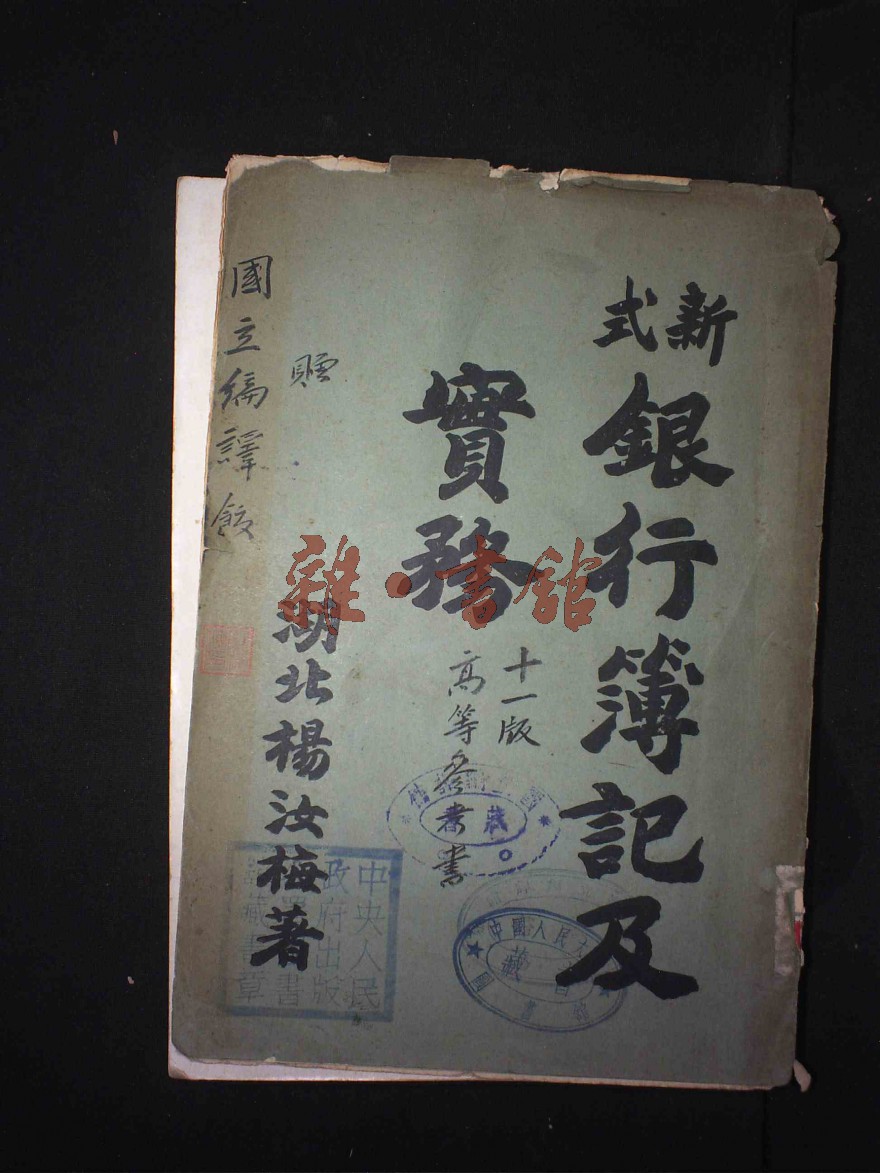 新式
銀行簿記及
實務
十一版
高等叅考書
湖北楊汝梅著
贈
國立編譯館
雜·書館
中央人民
政府出版
藏書章
中國人民大
藏